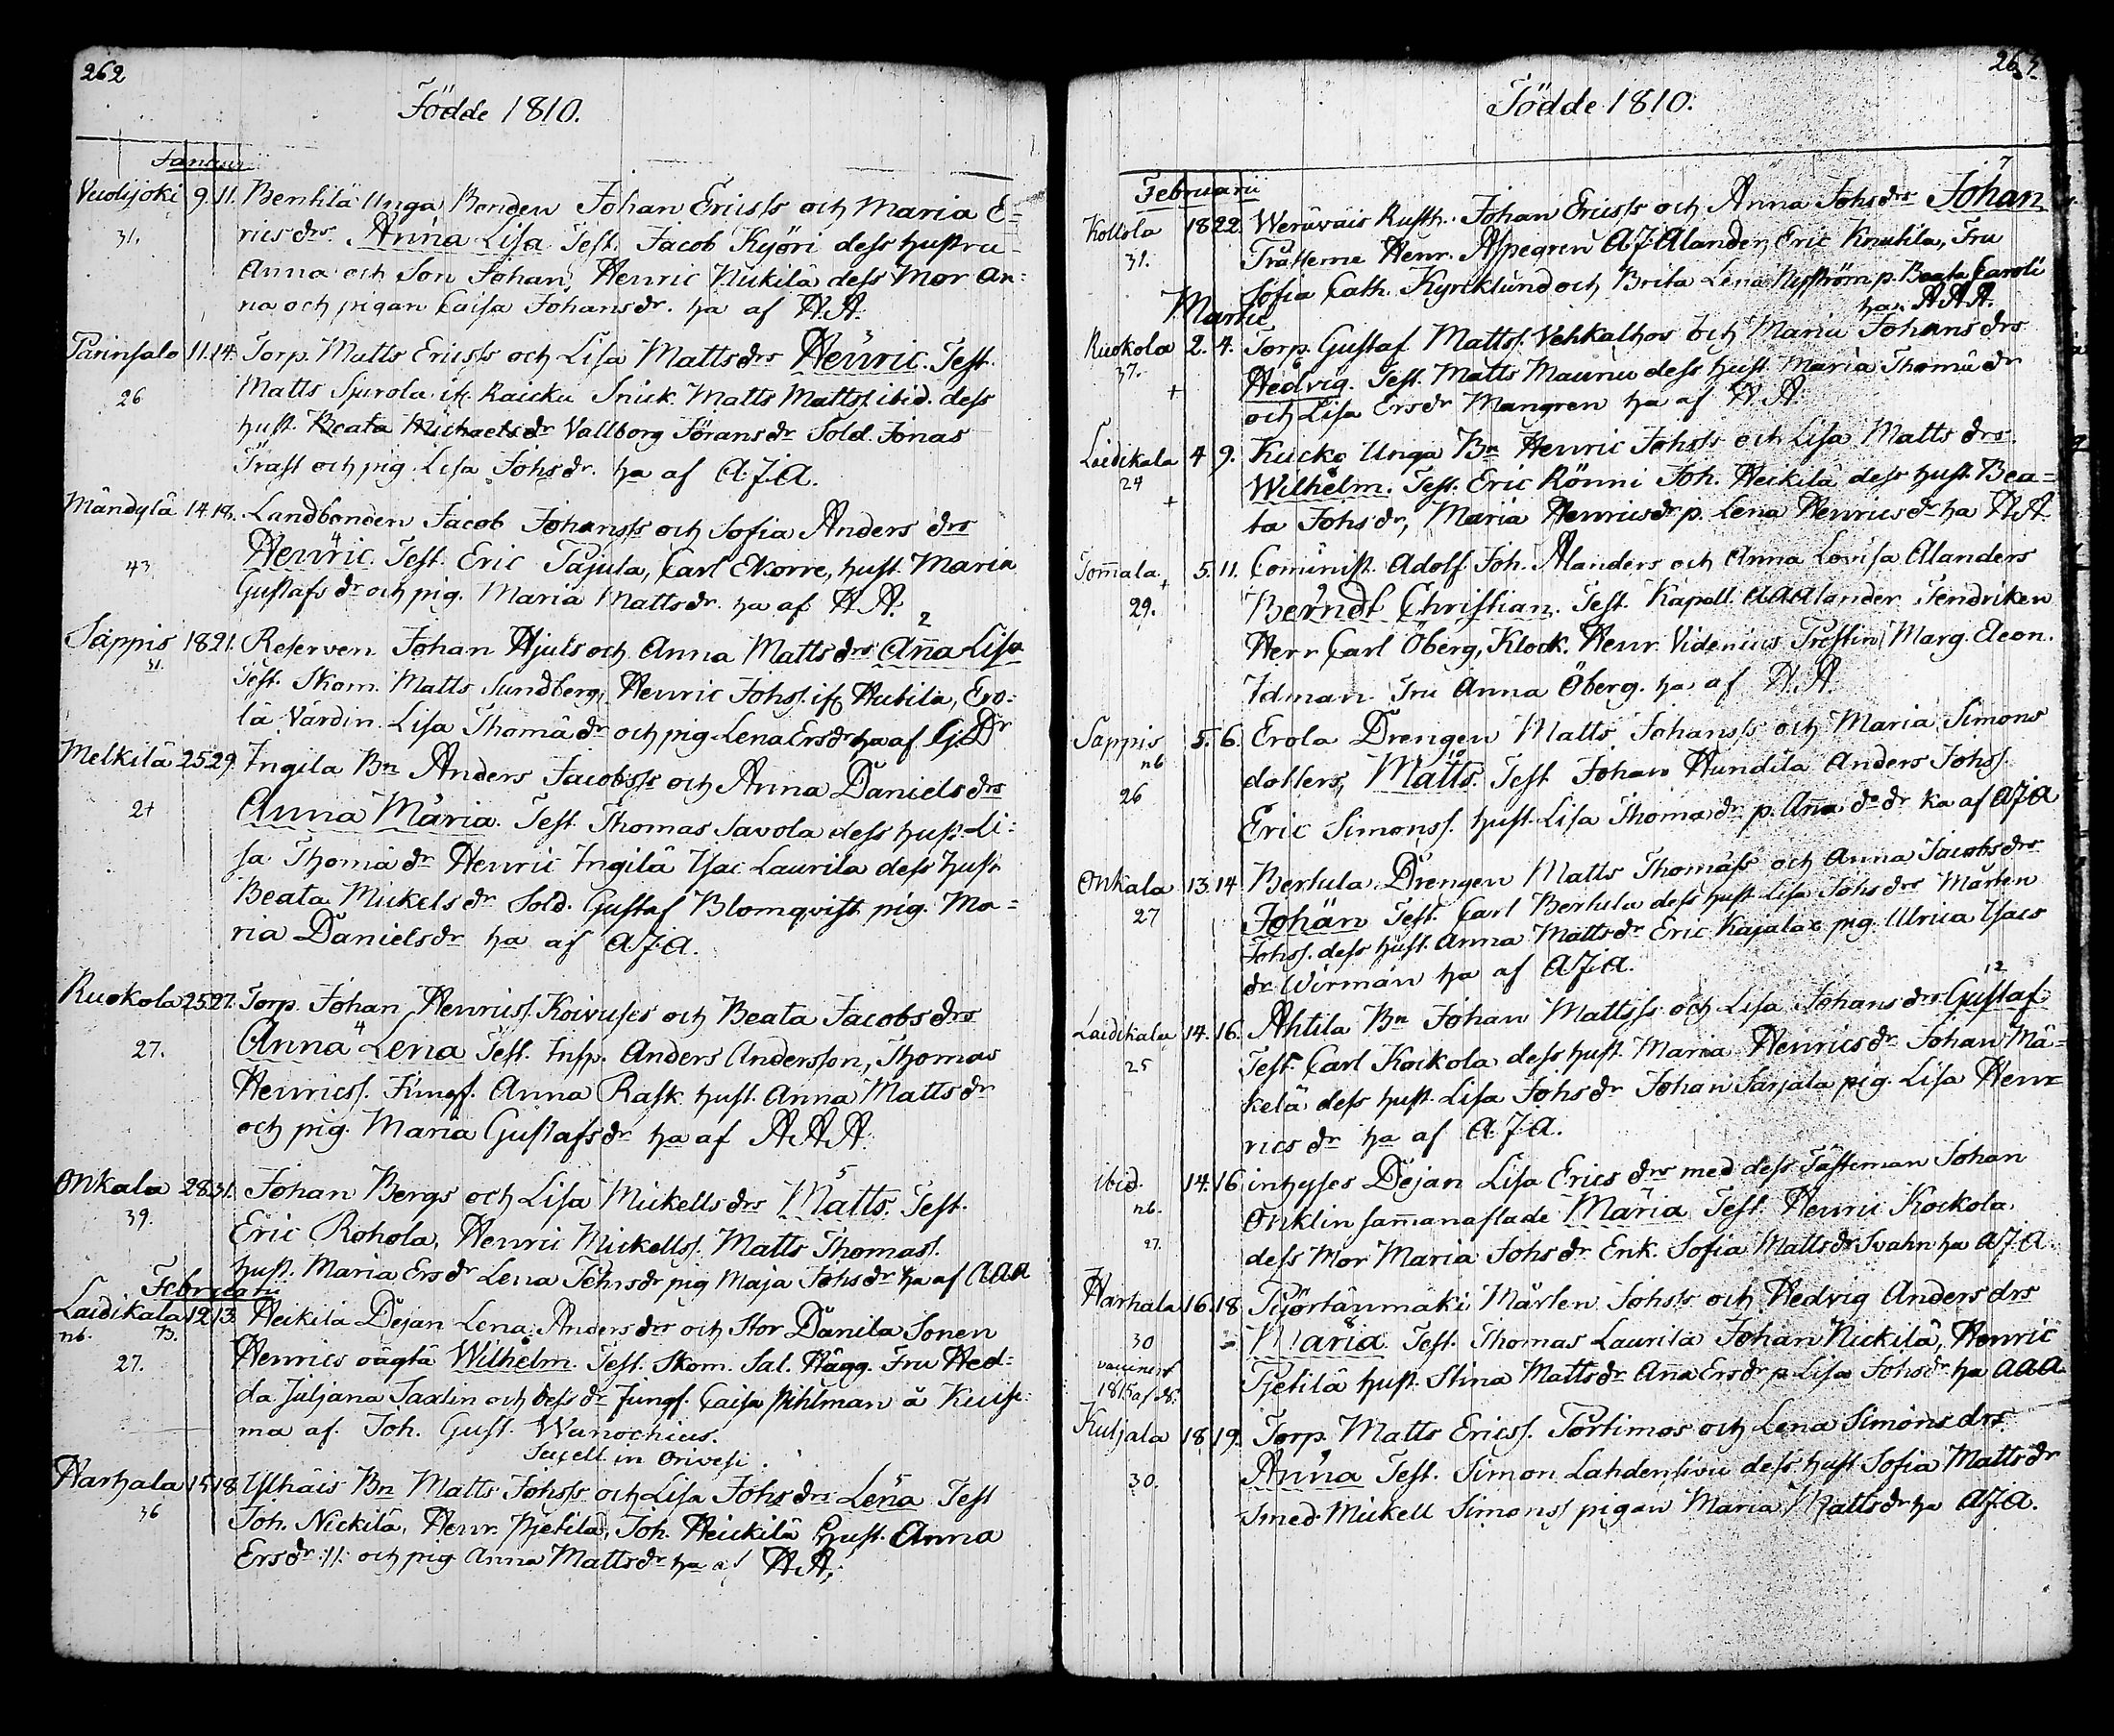 262
Födde 1810.
Januarii
Vuolijoki 9. 11. Benhilä Unga Bonden Johan Ericss och Maria E=
31. ricsdrs Anna Lisa Test. Jacob Kyöri dess hustru
Anna och Son Johan, Henric Nickilä dess Mor An:
na och pigan Caisa Johansdr. ha af H A.
Parinsalo 11. 14. Torp. Matts Ericss och Lisa Mattsdrs Henric. Test.
26 Matts Spurola it. Raicku Snick. Matts Mattss. ibid. dess
hust. Beata Michaelsdr Vallborg Göransdr Sold. Jonas
Trast och pig. Lisa Johsdr. ha af A.J.A.
Mändylä 14. 18. Landbonden Jacob Johanss och Sofia Anders drs
43 Henric. Test. Eric Pajula, Carl Ekorre, hust. Maria
Gustafsdr och pig. Maria Mattsdr. ha af H A.
2
Sappis 18 21. Reserven Johan Hjuls och Anna Mattsdrs Anna Lisa
31. Test. Skom. Matts Sundberg, Henric Johss. it. Hutila, Ero:
la Värdin. Lisa Thomädr och pig. Lena Ersdr ha af G. Dr
Melkilä 25 29. Ingila Bn Anders Jacobss och Anna Daniels drs
24 Anna Maria. Test. Thomas Savola dess hust. Li:
sa Thomä dr Henric Ingilä Isac Laurila dess hust.
Beata Mickelsdr Sold. Gustaf Blomqvist pig. Ma=
ria Danielsdr ha af AJA.
Ruokola 25 27. Torp. Johan Henricss. Koivuses och Beata Jacobs drs
27. Anna 4 Lena Test. Insp. Anders Andersson, Thomas
Henricss. Jungf. Anna Rask hust. Anna Matts dr
och pig. Maria Gustafsdr ha af A A A.
Onkala 28 31. Johan Bergs och Lisa Mickells drs Matts 5. Test.
39. Eric Rohola, Henric Mickellss. Matts Thomass.
hust. Maria Ersdr Lena Johsdr pig Maja Johsdr ha af AAA
Februarii
Laidikala 12 13. Heikilä Dejan Lena Andersdrs och Stor Danila Sonen
nb. 27. Henrics oägta Wilhelm. Test. Skom. Sal. Hägg. Fru Hed=
da Juljana Saxlin och dess dr Jungf. Caisa Pihlman å Kuise:
ma af Joh. Gust. Wanochius.
Sacell. in Orivesi.
Harhala 15 18. Ylhäis Bn Matts Johss och Lisa Johsdrs Lena Test
36 Joh. Nickilä, Henr. Pjetilä, Joh. Heickilä hust. Anna
Ersdr :/1: och pig Anna Mattsdr ha af H A.
263.
Födde 1810.
Februarii 7
Kollola 18 22. Weräväis Rusth. Johan Ericss och Anna Johsdrs Johan
31. Prästerne Henr. Aspegren A.J. Alander, Eric Knutila, Fru
Sofia Cath. Kyrcklund och Brita Lena Nyström p. Beata Caroli
ha AAA.
Martii
Ruokola 2. 4. Torp. Gustaf Mattss. Vehkalhos och Maria Johans drs
37. + Hedvig. Test. Matts Maunu dess hust. Maria Thomä dr
och Lisa Ersdr Mangren ha af H A.
Laidikala 4 9. Kucko Unga Bn Henric Johss och Lisa Matts drs
24 + Wilhelm. Test. Eric Rönni Joh. Heickilä dess hust. Bea=
ta Johsdr, Maria Henricsdr p. Lena Henricsdr ha H A
Tommala + 5. 11. Cominist. Adolf. Joh. Alanders och Anna Lovisa Alanders
29. Berndt Christian. Test. Kapell. AAAlander Fendriken
Herr Carl Öberg, Klock. Henr. Videnius Prestin Marg. Eleon.
Idman Fru Anna Öberg. ha af H A
Sappis 5. 6. Erola Drengen Matts Johanss och Maria Simons
nb 10
26 dotters, Matts. Test Johan Hundila Anders Johss.
Eric Simonss. hust. Lisa Thomädr p. Anna do dr ha af AJA
Onkala 13. 14 Bertula Drengen Matts Thomäss och Anna Jacobs drs
27 Johan Test. Carl Bertula dess hust Lisa Johsdr Mårten
Johss. dess hust. Anna Mattsdr Eric Kajala pig. Ulrica Isacs
dr Wirman ha af AJA.
12
Laidikala 14. 16. Ahtila Bn Johan Mattss och Lisa Johans drs Gustaf
25 Test. Carl Kockola dess hust. Maria Henricsdr Johan Mä=
kelä dess hust. Lisa Johsdr Johan Sarjala pig. Lisa Hen=
rics dr ha af A.J.A.
ibid. 14. 16 inhyses Dejan Lisa Erics drs med dess Fästeman Johan
nb. Onklin sammanaflade Maria Test. Henric Kockola,
27. dess Mor Maria Johsdr Enk. Sofia Mattsdr Svahn ha AJA.
Harhala 16. 18 Pyörtänmäki Mårten Johss och Hedvig Anders drs
30 Maria 8 Test. Thomas Laurila Johan Nickilä, Henric
vaccinerad 1815 Pjetilä hust. Stina Mattsdr Anna Ersdr p. Lisa Johsdr ha AAA.
Kuljala 18 19. Torp. Matts Ericss. Portimos och Lena Simons drs
30. Anna Test. Simon Lahdensivu dess hust Sofia Mattsdr
Smed. Mickell Simonss pigan Maria Mattsdr ha AJA.